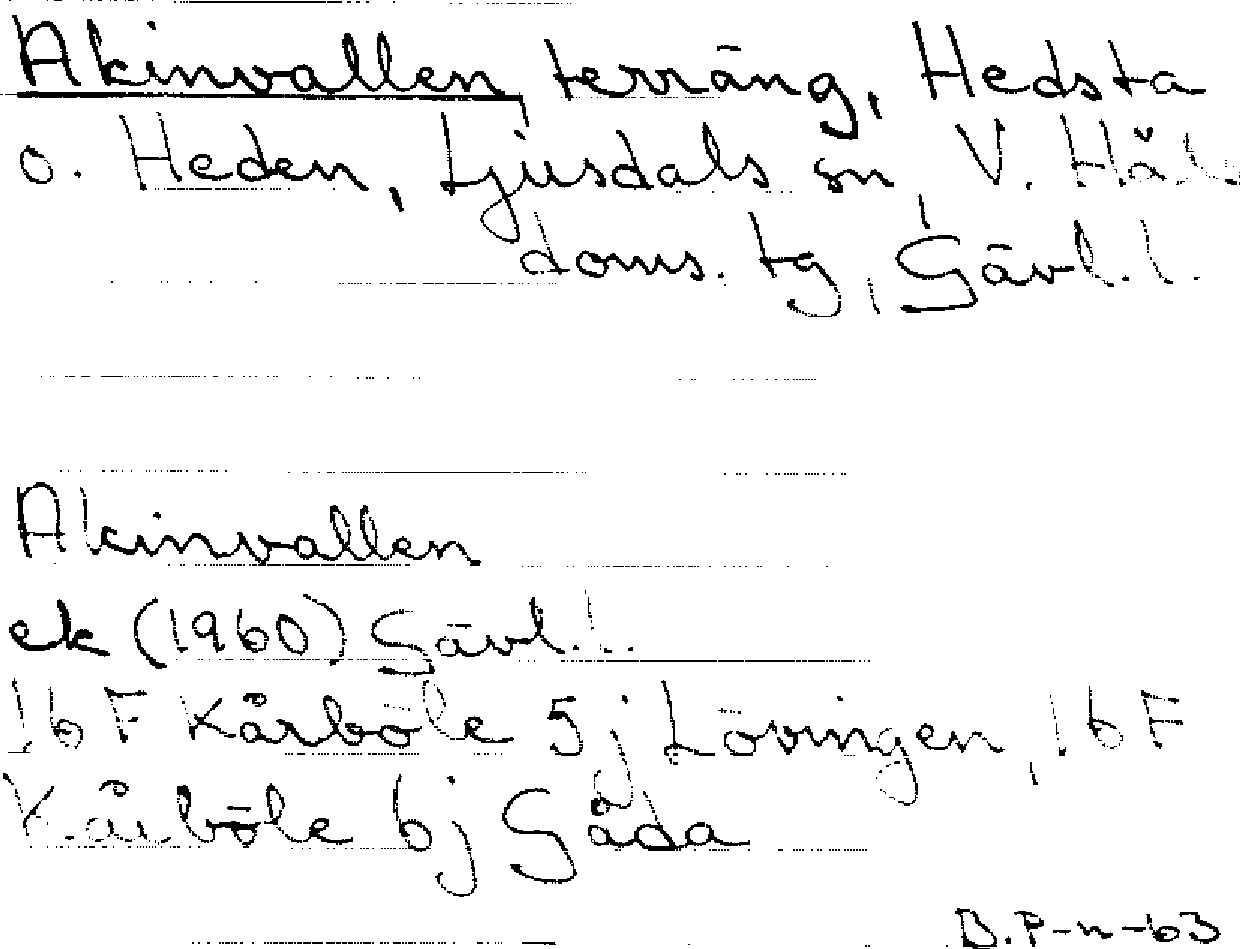 Akinvallen, terräng, Hedsta
o. Heden, Ljusdals sn, V. Häls.
doms. tg, Gävl. l.
Akinvallen
ek (1960) Gävl. l.
16 F Kårböle 5 j Lövingen, 16 F
Kårböle 6 j Gåda
B. P-n -63